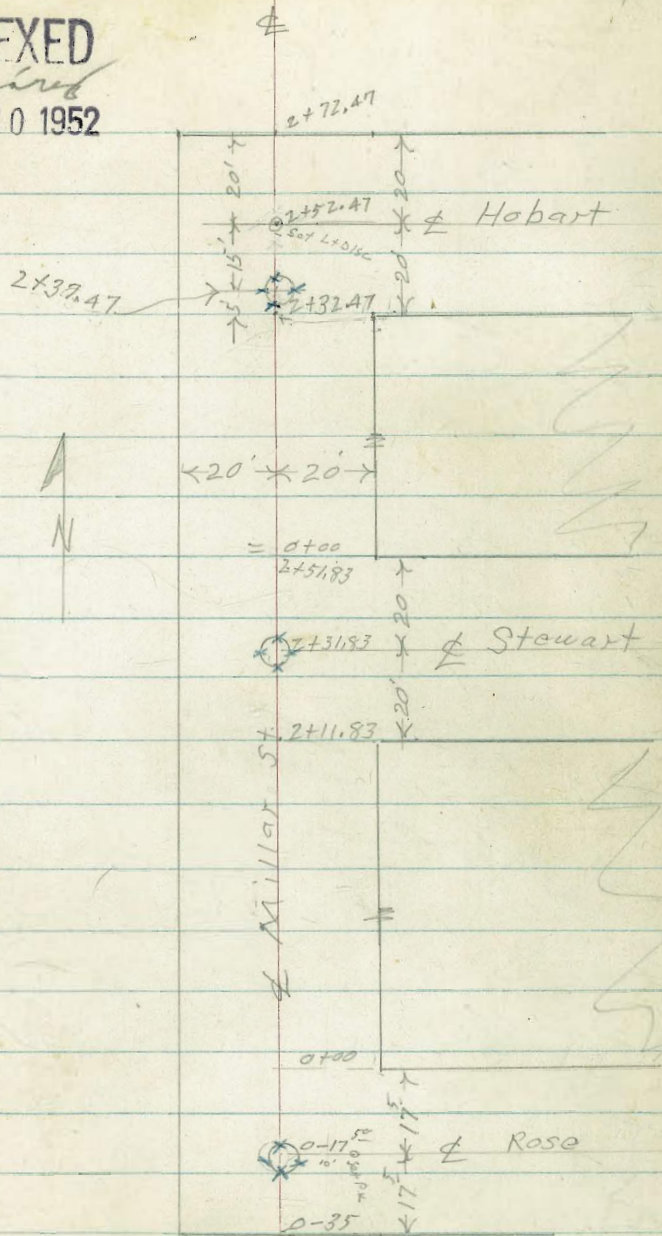 EXED
0 1952
℄
2+72.47
20'
20
2+52.47
℄ Hobart
Set L+Disc
15'
20'
2+37.47
5'
2+32.47
20' 20'
N
= 0+00
2+51.83
20
2+31.83
℄ Stewart
20'
2+11.83
℄ Millar St
0+00
17⁵
0-17⁵⁰
℄ Rose
10'
17⁵
0-35